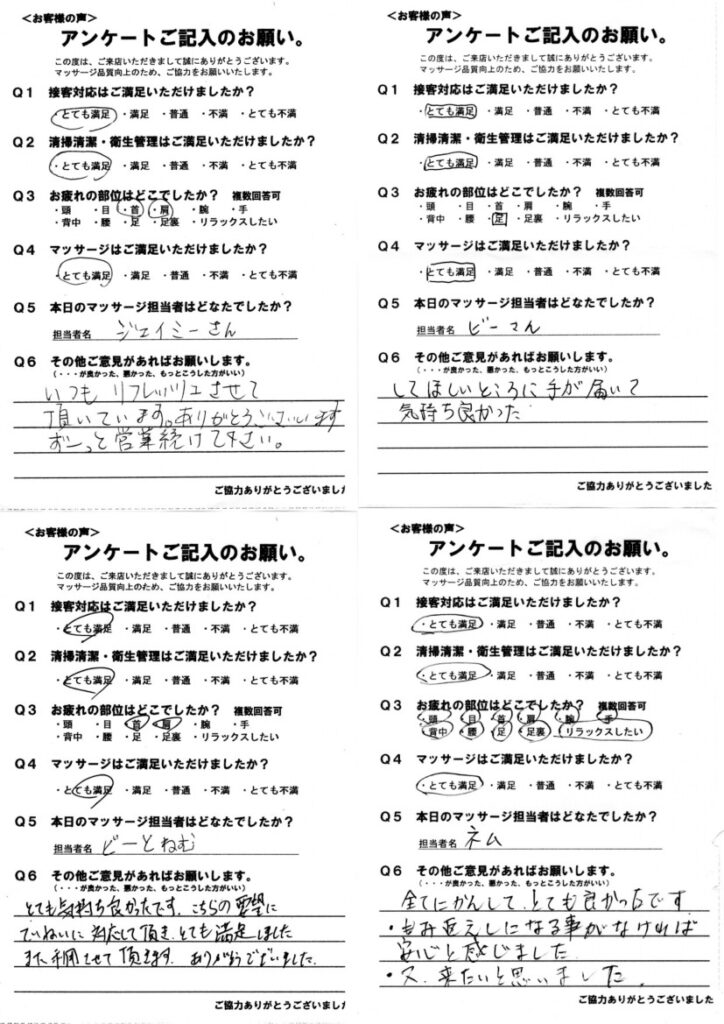 <お客様の声>
アンケートご記入のお願い。
この度は、ご来店いただきまして誠にありがとうございます。
マッサージ品質向上のため、ご協力をお願いいたします。
Q1 接客対応はご満足いただけましたか?
・とても満足 ・満足 ・普通 ・不満 ・とても不満
Q2 清掃清潔・衛生管理はご満足いただけましたか?
・とても満足 ・満足 ・普通 ・不満 ・とても不満
Q3 お疲れの部位はどこでしたか? 複数回答可
・頭 ・目 ・首 ・肩 ・腕 ・手
・背中 ・腰 ・足 ・足裏 ・リラックスしたい
Q4 マッサージはご満足いただけましたか?
・とても満足 ・満足 ・普通 ・不満 ・とても不満
Q5 本日のマッサージ担当者はどなたでしたか?
担当者名 ジェイミーさん
Q6 その他ご意見があればお願いします。
(・・・が良かった、悪かった、もっとこうした方がいい)
いつも リフレッシュさせて
頂いています。ありがとうございます
ずーっと営業続けて下さい。
ご協力ありがとうございまし
<お客様の声>
アンケートご記入のお願い。
この度は、ご来店いただきまして誠にありがとうございます。
マッサージ品質向上のため、ご協力をお願いいたします。
Q1 接客対応はご満足いただけましたか?
・とても満足 ・満足 ・普通 ・不満 ・とても不満
Q2 清掃清潔・衛生管理はご満足いただけましたか?
・とても満足 ・満足 ・普通 ・不満 ・とても不満
Q3 お疲れの部位はどこでしたか? 複数回答可
・頭 ・目 ・首 ・肩 ・腕 ・手
・背中 ・腰 ・足 ・足裏 ・リラックスしたい
Q4 マッサージはご満足いただけましたか?
・とても満足 ・満足 ・普通 ・不満 ・とても不満
Q5 本日のマッサージ担当者はどなたでしたか?
担当者名 ビーさん
Q6 その他ご意見があればお願いします。
(・・・が良かった、悪かった、もっとこうした方がいい)
してほしいところに手が届いて
気持ち良かった
ご協力ありがとうございました
<お客様の声>
アンケートご記入のお願い。
この度は、ご来店いただきまして誠にありがとうございます。
マッサージ品質向上のため、ご協力をお願いいたします。
Q1 接客対応はご満足いただけましたか?
・とても満足 ・満足 ・普通 ・不満 ・とても不満
Q2 清掃清潔・衛生管理はご満足いただけましたか?
・とても満足 ・満足 ・普通 ・不満 ・とても不満
Q3 お疲れの部位はどこでしたか? 複数回答可
・頭 ・目 ・首 ・肩 ・腕 ・手
・背中 ・腰 ・足 ・足裏 ・リラックスしたい
Q4 マッサージはご満足いただけましたか?
・とても満足 ・満足 ・普通 ・不満 ・とても不満
Q5 本日のマッサージ担当者はどなたでしたか?
担当者名 ビーとねむ
Q6 その他ご意見があればお願いします。
(・・・が良かった、悪かった、もっとこうした方がいい)
とても気持ち良かったです。こちらの要望に
ていねいに対応して頂き、とても満足しました
また利用させて頂きます。ありがとうございました。
ご協力ありがとうございました
<お客様の声>
アンケートご記入のお願い。
この度は、ご来店いただきまして誠にありがとうございます。
マッサージ品質向上のため、ご協力をお願いいたします。
Q1 接客対応はご満足いただけましたか?
・とても満足 ・満足 ・普通 ・不満 ・とても不満
Q2 清掃清潔・衛生管理はご満足いただけましたか?
・とても満足 ・満足 ・普通 ・不満 ・とても不満
Q3 お疲れの部位はどこでしたか? 複数回答可
・頭 ・目 ・首 ・肩 ・腕 ・手
・背中 ・腰 ・足 ・足裏 ・リラックスしたい
Q4 マッサージはご満足いただけましたか?
・とても満足 ・満足 ・普通 ・不満 ・とても不満
Q5 本日のマッサージ担当者はどなたでしたか?
担当者名 ネム
Q6 その他ご意見があればお願いします。
(・・・が良かった、悪かった、もっとこうした方がいい)
全てにかんして、とても良かったです
・もみ返えしになる事がなければ
安心と感じました
・又、来たいと思いました。
ご協力ありがとうございました